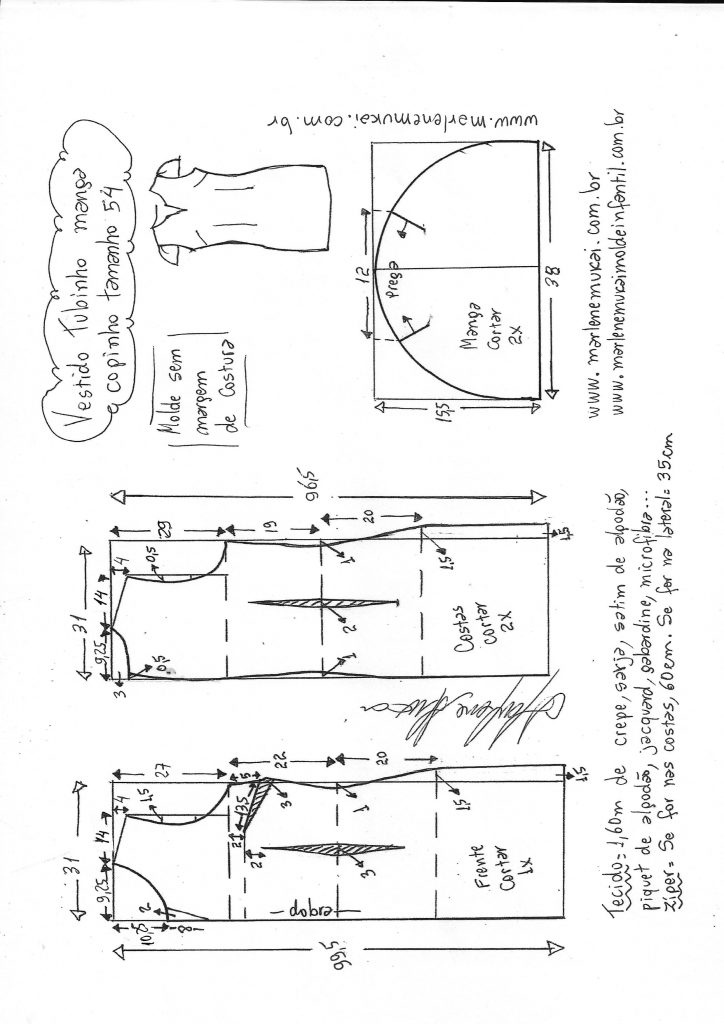 Vestido Tubinho manga
copinho tamanho 54
Molde sem
margem
de costura
www.marlenemukai.com.br
12
Prega
Manga
Cortar
2x
15,5
38
www.marlenemukai.com.br
www.marlenemukaimoldeinfantil.com.br
96,5
29
19
20
31
4
14
9,25
3
0,5
0,5
1
1
2
1,5
1,5
Costas
Cortar
2x
99,5
27
22
20
31
4
14
9,25
1,5
5
13,5
3
2
2
3
1
1,5
1,5
10,5
8
2
dobra
Frente
Cortar
1x
Tecido= 1,60m de crepe, sarja, satim de algodão,
piquet de algodão, jacquard, gabardine, microfibra...
Zíper= Se for nas costas, 60cm. Se for na lateral= 35cm